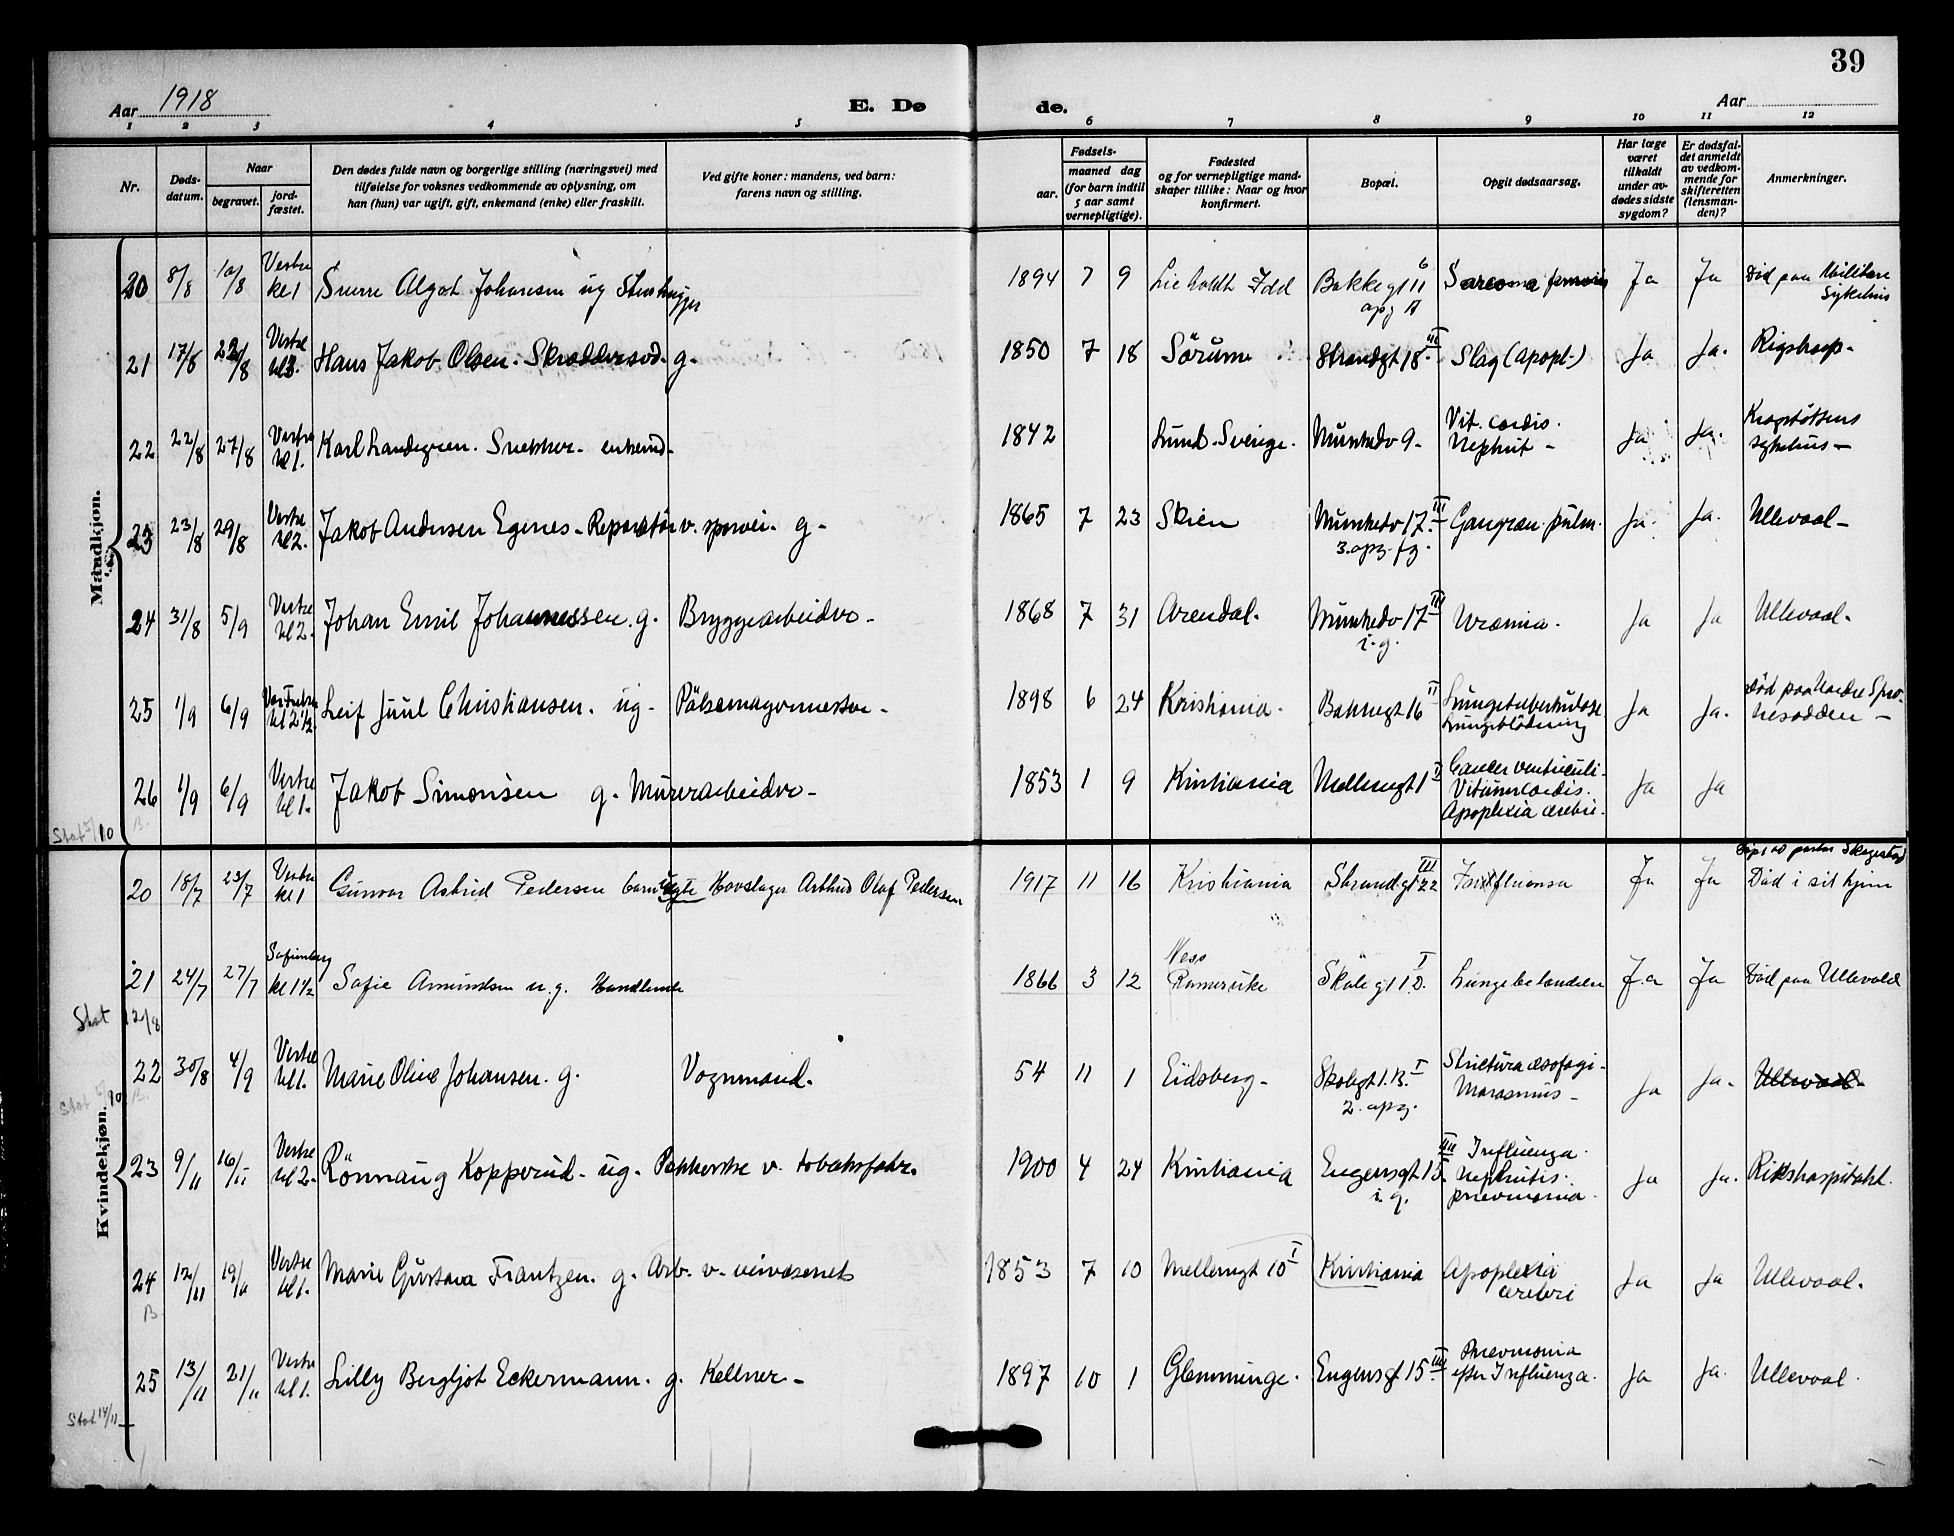 39
Aar 1918
E. Dø
de.
Aar
1 2 3 4 5 6 7 8 9 10 11 12
Nr.
Døds-
datum.
Naar
begravet.
jord-
fæstet.
Den dødes fulde navn og borgerlige stilling (næringsvei) med
tilføielse for voksnes vedkommende av oplysning, om
han (hun) var ugift, gift, enkemand (enke) eller fraskilt.
Ved gifte koner: mandens, ved barn:
farens navn og stilling.
Fødsels-
aar.
maaned dag
(for barn indtil
5 aar samt
vernepligtige).
Fødested
og for vernepligtige mand-
skaper tillike: Naar og hvor
konfirmert.
Bopæl.
Opgit dødsaarsag.
Har læge
været
tilkaldt
under av-
dødes sidste
sygdom?
Er dødsfal-
det anmeldt
av vedkom-
mende for
skifteretten
(lensman-
den)?
Anmerkninger.
Mandkjøn.
20 8/8 10/8 Vestre kl 1 Sverre Algot Johansen ug 1894 7 9 Idd Bakkegt 11 Sarcoma femoris Ja Ja Död paa Militære Sykehus
21 17/8 22/8 Vestre kl 3. Hans Jakob Olsen. Skræddersvd. g. 1850 7 18 Sörum Strandgt 18 III Slag (apopl.) Ja Ja. Rigshosp.
22 22/8 27/8 Vestre kl 1. Karl Landegren. Snekker. enkemd. 1842 Lund. Sverige. Munkedv 9. Vit. cordis. Nephrit - Ja Ja. Krogstöttens sykehus -
23 23/8 29/8 Vestre kl 2. Jakob Andersen Egenes. Reparatör v. sporvei. g. 1865 7 23 Skien Munkedv 17. III 3. opg. fg. Gangræn pulm. Ja. Ja. Ullevaal -
24 31/8 5/9 Vestre kl 2. Johan Emil Johannessen. g. Bryggearbeider. 1868 7 31 Arendal. Munkedv 17 III i. g. Uræmia. Ja Ja Ullevaal.
25 1/9 6/9 Vor Frelser kl 2 1/2. Leif Juul Christiansen. ug. Pölsemagermester. 1898 6 24 Kristiania. Bakkegt 16 II Lungetuberkulose. Lungeblödning Ja Ja. död paa Nesodden -
26 1/9 6/9 Vestre kl 1. Jakob Simonsen g. Murerarbeider. 1853 1 9 Kristiania Mellemgt 1 Cancer ventriculi. Vitium cordis. Apoplexia cerebri. Ja Ja
Stat 5/10
Kvindekjøn.
20 18/7 23/7 Vestre kl 1 Gunvor Astrid Pedersen barn ægte Hovslager Arthur Olaf Pedersen 1917 11 16 Kristiania Strandgt 22 III Influensa Ja Ja Död i sit hjem
21 24/7 27/7 Sofienberg kl 1 1/2 Sofie Amundsen u.g. 1866 3 12 Ness Romerike Skolegt 1 B. I Lungebetændelse Ja Ja Död paa Ullevaal
Stat 12/8
22 30/8 4/9 Vestre kl 1. Marie Oline Johansen. g. Vognmand. 54 11 1 Eidsberg. Skolegt 1. B. I 2. opg. Strictura æsofagi. Marasmus - Ja Ja. Ullevaal.
Stat 5/10
23 9/11 16/11 Vestre kl 2. Rönnaug Kopperud. ug. Pakkerske v. tobaksfabr. 1900 4 24 Kristiania Eugensgt 15. III i. g. Influenza. Nephritis. pneumonia. Ja Ja. Rikshospitalet.
24 12/11 19/11 Vestre kl 1. Marie Gustava Frantzen. g. Arb. v. veivæsenet 1853 7 10 Mellemgt 10 I Kristiania Apoplexia cerebri Ja Ja Ullevaal.
B
25 13/11 21/11 Vestre kl 1. Lilly Bergljot Eckermann. g. Kellner. 1897 10 1 Glemminge. Eugensgt 15 III Pneumonia efter Influenza. Ja Ja. Ullevaal.
Stat 14/11